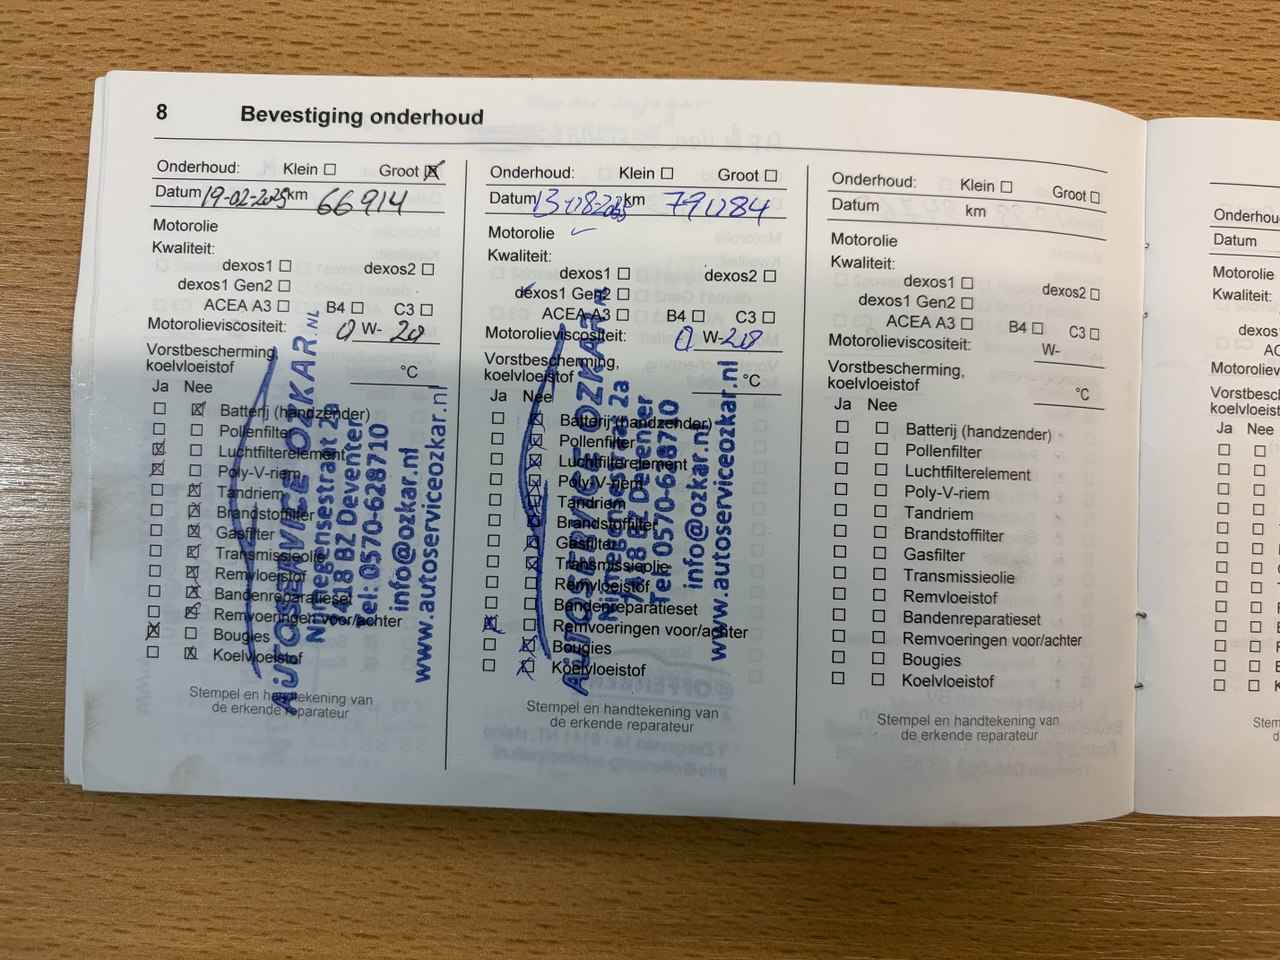 8 Bevestiging onderhoud
Onderhoud: Klein ☐ Groot ☒
Datum 19-02-2025 km 66914
Motorolie
Kwaliteit:
dexos1 ☐ dexos2 ☐
dexos1 Gen2 ☐
ACEA A3 ☐ B4 ☐ C3 ☐
Motorolieviscositeit: 0 W- 20
Vorstbescherming,
koelvloeistof °C
Ja Nee
☐ ☒ Batterij (handzender)
☐ ☐ Pollenfilter
☒ ☐ Luchtfilterelement
☒ ☐ Poly-V-riem
☐ ☒ Tandriem
☐ ☒ Brandstoffilter
☐ ☒ Gasfilter
☐ ☒ Transmissieolie
☐ ☒ Remvloeistof
☐ ☒ Bandenreparatieset
☐ ☒ Remvoeringen voor/achter
☒ ☐ Bougies
☐ ☒ Koelvloeistof
AUTOSERVICE OZKAR.NL
Nijmegensestraat 2a
7418 BZ Deventer
Tel: 0570-628710
info@ozkar.nl
www.autoserviceozkar.nl
Stempel en handtekening van
de erkende reparateur
Onderhoud: Klein ☐ Groot ☐
Datum km
Motorolie ✓
Kwaliteit:
dexos1 ☐ dexos2 ☐
dexos1 Gen2 ☐
ACEA A3 ☐ B4 ☐ C3 ☐
Motorolieviscositeit: 0 W-
Vorstbescherming,
koelvloeistof °C
Ja Nee
☐ ☒ Batterij (handzender)
☐ ☒ Pollenfilter
☐ ☒ Luchtfilterelement
☐ ☒ Poly-V-riem
☐ ☒ Tandriem
☐ ☒ Brandstoffilter
☐ ☒ Gasfilter
☐ ☒ Transmissieolie
☐ ☐ Remvloeistof
☐ ☐ Bandenreparatieset
☒ ☐ Remvoeringen voor/achter
☐ ☒ Bougies
☐ ☒ Koelvloeistof
AUTOSERVICE OZKAR.NL
Nijmegensestraat 2a
7418 BZ Deventer
Tel: 0570-628710
info@ozkar.nl
www.autoserviceozkar.nl
Stempel en handtekening van
de erkende reparateur
Onderhoud: Klein ☐ Groot ☐
Datum km
Motorolie
Kwaliteit:
dexos1 ☐ dexos2 ☐
dexos1 Gen2 ☐
ACEA A3 ☐ B4 ☐ C3 ☐
Motorolieviscositeit: W-
Vorstbescherming,
koelvloeistof °C
Ja Nee
☐ ☐ Batterij (handzender)
☐ ☐ Pollenfilter
☐ ☐ Luchtfilterelement
☐ ☐ Poly-V-riem
☐ ☐ Tandriem
☐ ☐ Brandstoffilter
☐ ☐ Gasfilter
☐ ☐ Transmissieolie
☐ ☐ Remvloeistof
☐ ☐ Bandenreparatieset
☐ ☐ Remvoeringen voor/achter
☐ ☐ Bougies
☐ ☐ Koelvloeistof
Stempel en handtekening van
de erkende reparateur
Datum
Motorolie
Kwaliteit:
Ja Nee